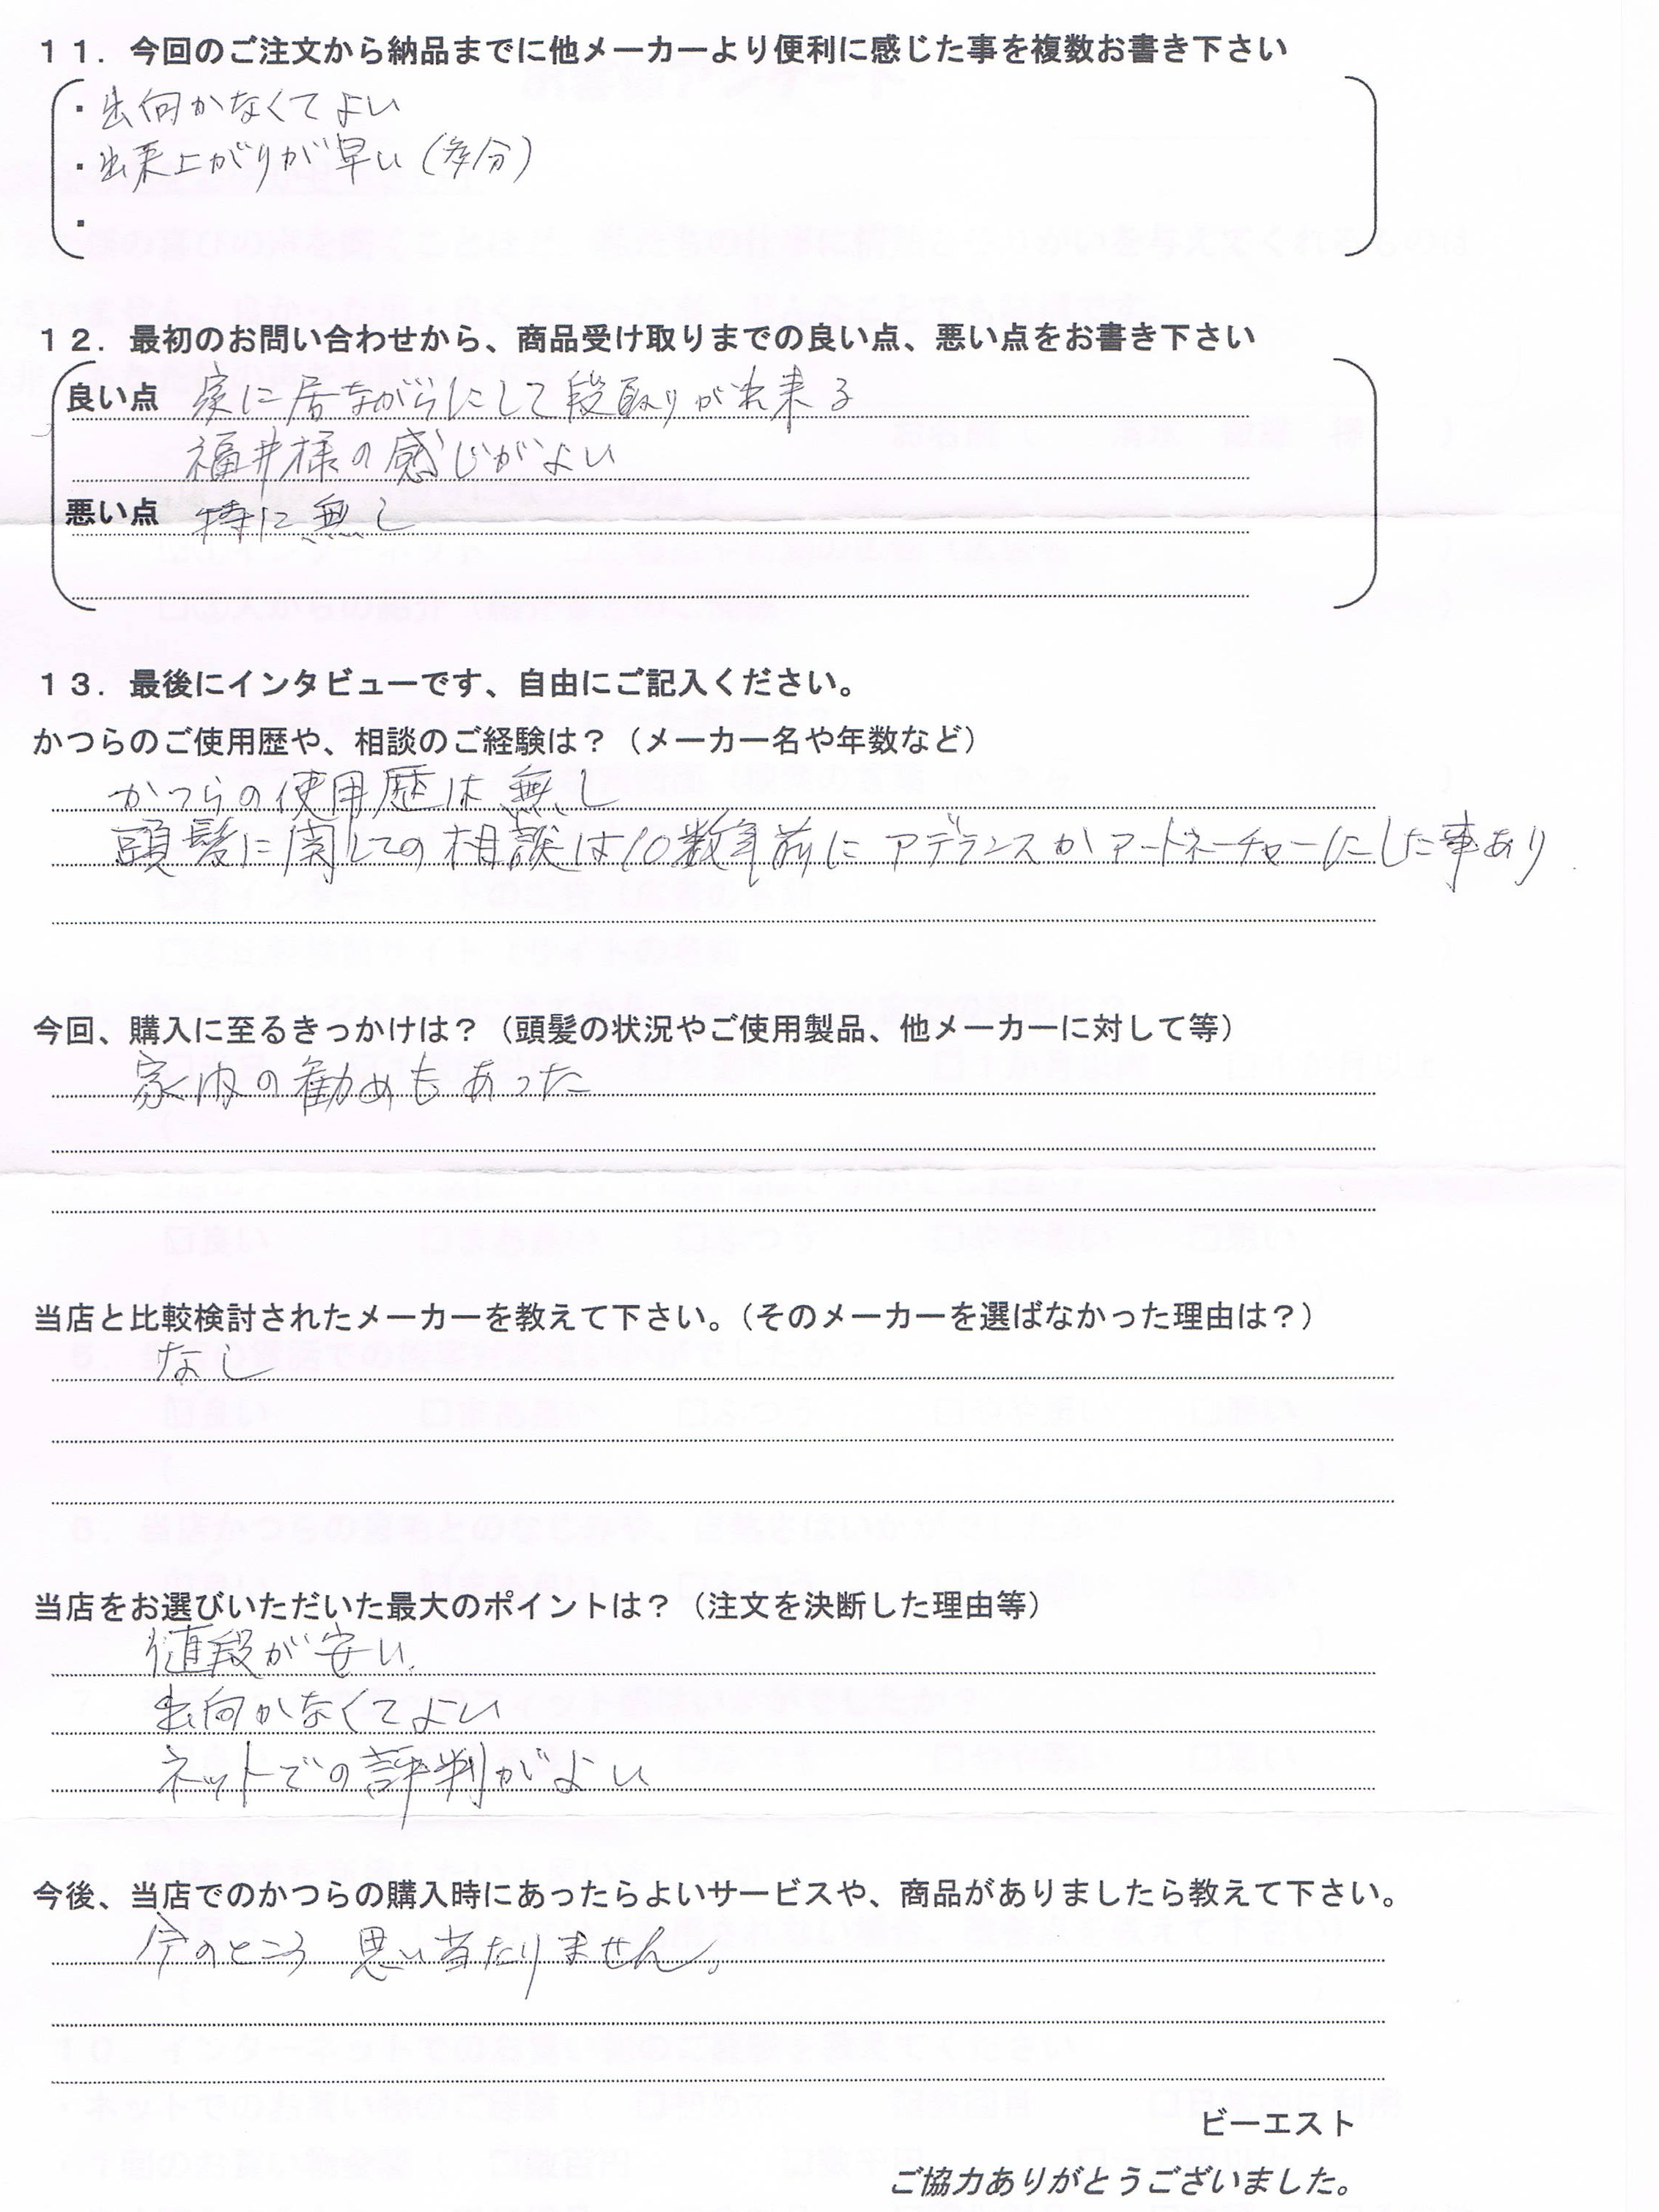 １１．今回のご注文から納品までに他メーカーより便利に感じた事を複数お書き下さい
・出向かなくてよい
・出来上がりが早い（多分）
・
１２．最初のお問い合わせから、商品受け取りまでの良い点、悪い点をお書き下さい
良い点　家に居ながらにして段取りが出来る
福井様の感じがよい
悪い点　特に無し
１３．最後にインタビューです、自由にご記入ください。
かつらのご使用歴や、相談のご経験は？（メーカー名や年数など）
かつらの使用歴は無し
頭髪に関しての相談は10数年前にアデランスかアートネーチャーにした事あり
今回、購入に至るきっかけは？（頭髪の状況やご使用製品、他メーカーに対して等）
家内の勧めもあった
当店と比較検討されたメーカーを教えて下さい。（そのメーカーを選ばなかった理由は？）
なし
当店をお選びいただいた最大のポイントは？（注文を決断した理由等）
値段が安い
出向かなくてよい
ネットでの評判がよい
今後、当店でのかつらの購入時にあったらよいサービスや、商品がありましたら教えて下さい。
今のところ 思い当たりません。
ビーエスト
ご協力ありがとうございました。